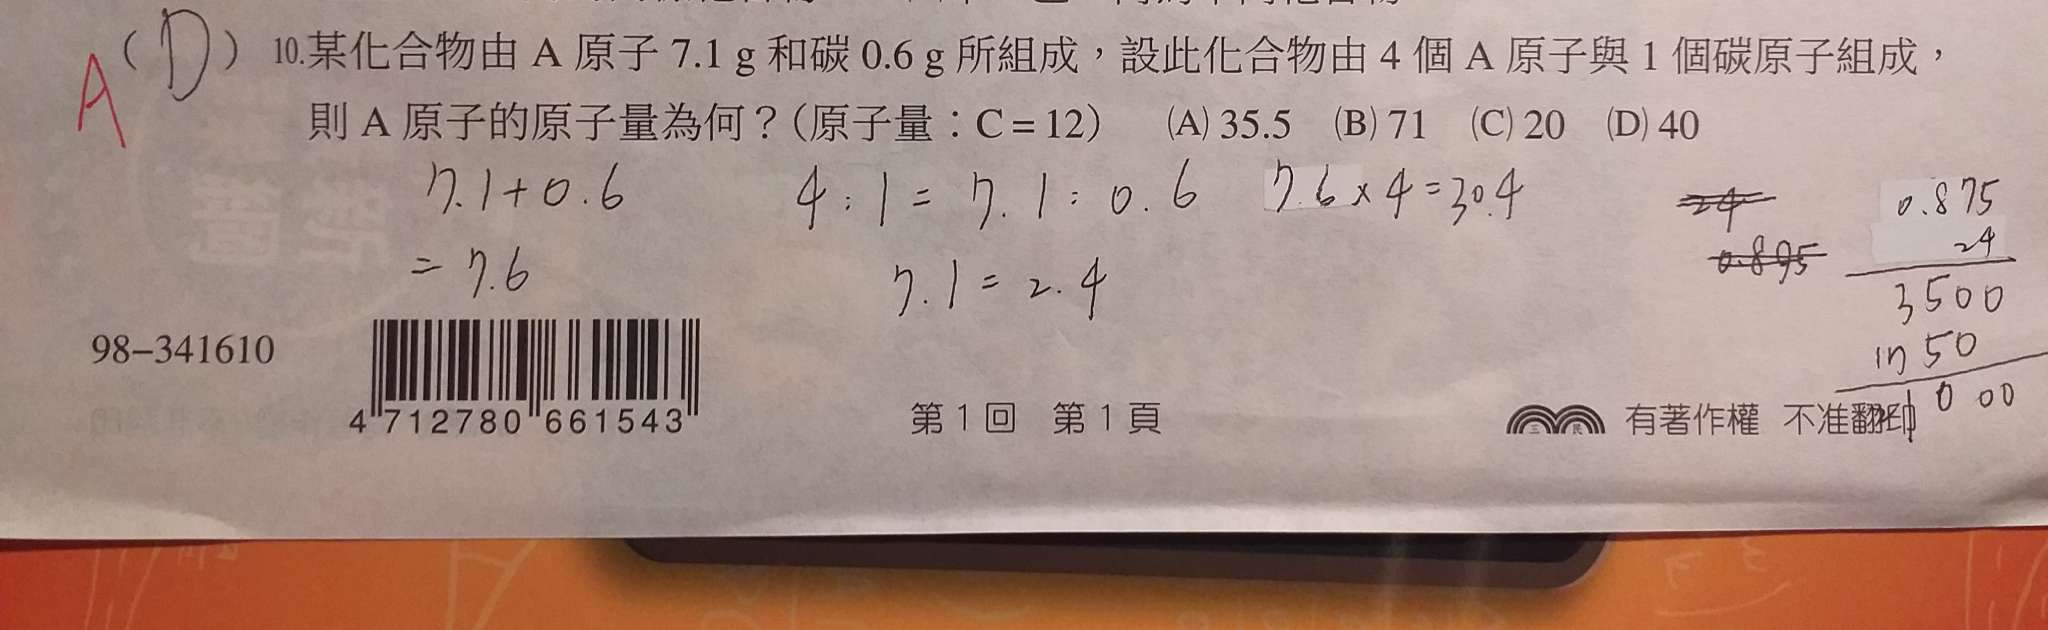 A (D) 10.某化合物由 A 原子 7.1 g 和碳 0.6 g 所組成，設此化合物由 4 個 A 原子與 1 個碳原子組成，
則 A 原子的原子量為何？(原子量：C = 12) (A) 35.5 (B) 71 (C) 20 (D) 40
7.1+0.6
= 7.6
4 : 1 = 7.1 : 0.6
7.1 = 2.4
7.6 × 4 = 30.4
24
0.895
0.875
24
3500
1750
000
98-341610
4 712780 661543
第 1 回 第 1 頁
三民
有著作權 不准翻印